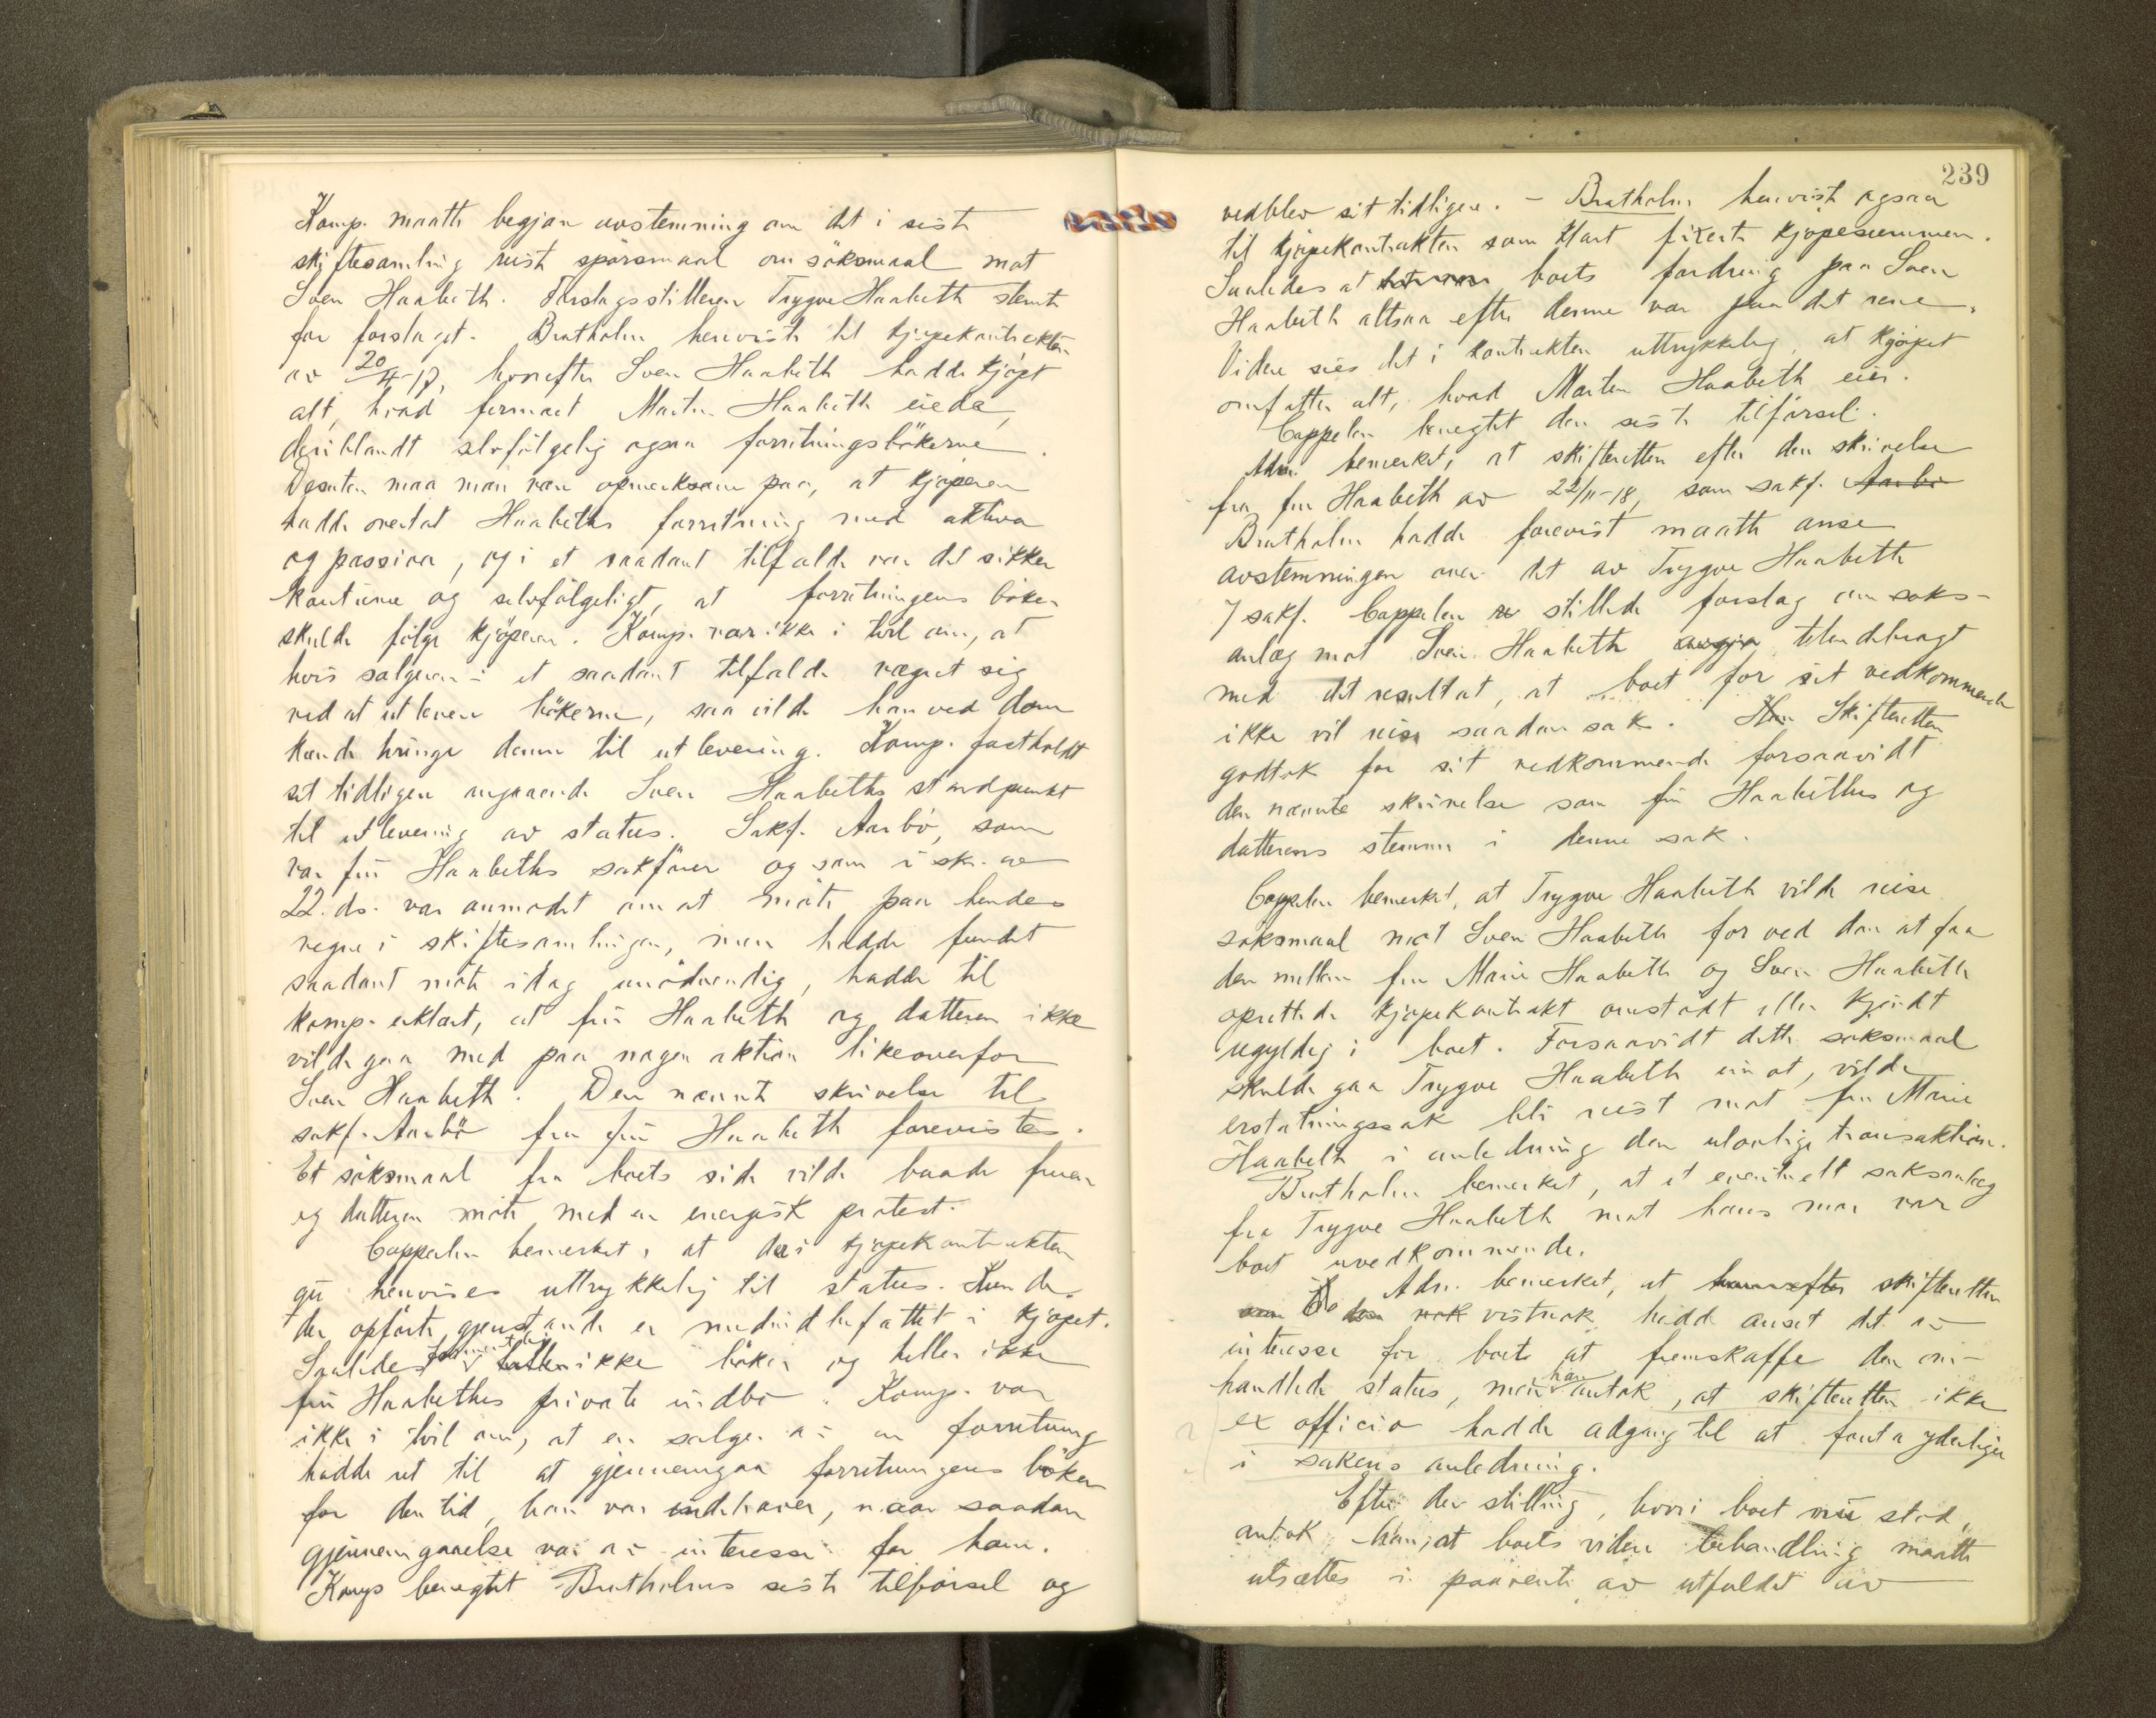 Komp. maatte begjære avstemning om det i siste
skiftesamling reiste spörsmaal om söksmaal mot
Sven Haabeth. Forslagsstilleren Trygve Haabeth stemte
for forslaget. Bratholm henviste til kjöpekontrakten
av 20/4-17, hvorefter Sven Haabeth hadde kjöpt
alt, hvad fermaet Marten Haabeth eiede,
deriblandt selvfölgelig ogsaa forretningsbökerne.
Desuten maa man være opmerksom paa, at kjöperen
hadde overtat Haabeths forretning med aktiva
og passiva, og i et saadant tilfælde var det sikker
koutüme og selvfölgeligt, at forretningens böker
skulde fölge kjöperen. Komp. var ikke i tvil om, at
hvis sælgeren i et saadant tilfælde vægret sig
ved at utlevere bökerne, saa vilde han ved dom
kunde tvinge denne til utlevering. Komp. fastholdt
sit tidligere angaaende Sven Haabeths standpunkt
til utlevering av status. Sakf. Aarbö, som
var frü Haabeths sakförer og som i skr. av
22. ds. var anmodet om at möte paa hendes
vegne i skiftesamlingen, men hadde fundet
saadant möte idag unödvendig, hadde til
komp. erklært, at frü Haabeth og datteren ikke
vilde gaa med paa nogen aktion likeoverfor
Sven Haabeth. Den nævnte skrivelse til
sakf. Aarbö fra frü Haabeth forevistes.
Et söksmaal fra boets side vilde baade fruen
og datteren möte med en energisk protest.
Cappelen bemerket, at der i kjöpekontrakten
gü henvises uttrykkelig til status. Kun de
der opförte gjenstande er medindbefattet i kjöpet.
Saaledes ikke böker og heller ikke
frü Haabethes private indbo. Komp. var
ikke i tvil om, at en sælger av en forretning
hadde ret til at gjennemgaa forretningens böker
for den tid, han var indehaver, naar saadan
gjennemgaaelse var av interesse for ham.
Komp benegtet Bratholms siste tilförsel og
239
vedblev sit tidligere. - Bratholm henviste ogsaa
til kjöpekontrakten som klart fixerte kjöpesummen.
Saaledes at boets fordring paa Sven
Haabeth altsaa efter denne var paa det rene.
Videre sies det i kontrakten uttrykkelig, at kjöpet
omfatter alt, hvad Marten Haabeth eier.
Cappelen benegtet den siste tilförsel.
Adm. bemerket, at skifteretten efter den skrivelse
fra fru Haabeth av 22/11-18, som sakf. Aarbö
Bratholm hadde forevist maatte anse
avstemningen over det av Trygve Haabeth
/ sakf. Cappelen stillede forslag om saks-
anlæg mot Sven Haabeth tilendebragt
med det resultat, at boet for sit vedkommende
ikke vil reise saadan sak. Skifteretten
godtok for sit vedkommende forsaavidt
den nævnte skrivelse som frü Haabethes og
datterens stemme i denne sak.
Cappelen bemerket, at Trygve Haabeth vilde reise
söksmaal mot Sven Haabeth for ved dom at faa
den mellem fru Marie Haabeth og Sven Haabeth
oprettede kjöpekontrakt omstödt eller kjendt
ugyldig i boet. Forsaavidt dette söksmaal
skulde gaa Trygve Haabeth imot, vilde
erstatningssak bli reist mot fru Marie
Haabeth i anledning den ulovlige transaktion.
Bratholm bemerket, at et eventuelt saksanlæg
fra Trygve Haabeth mot hans mor var
boet uvedkommende.
Adm. bemerket, at skifteretten
vistnok hadde anset det av
interesse for boet at fremskaffe den om-
handlede status, men han antok, at skifteretten ikke
ex officio hadde adgang til at foreta yderligere
i sakens anledning.
Efter den stilling, hvori boet nü stod,
antok han, at boets videre behandling maatte
utsættes i paavente av utfaldet av